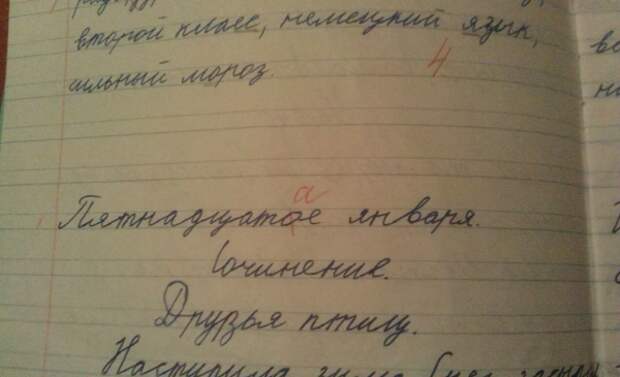 второй класс, немецкий язык,
сильный мороз.
4
а
Пятнадцатое января.
Сочинение.
Друзья птицу.
Наступила зима. Снег